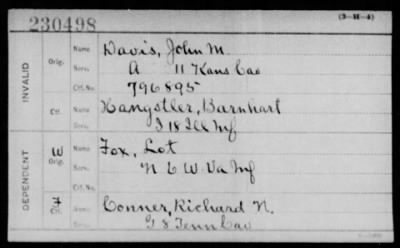 230498
(3-H-4)
INVALID
Orig.
Name Davis, John M.
Serv. A 11 Kans Cav
Ctf. No. 796895
Ctf.
Name Hangstler, Barnhart
Serv. I 18 Ill Inf
DEPENDENT
W
Orig.
Name Fox, Lot
Serv. N 6 W-Va Inf
Ctf. No.
Ctf.
Name Conner, Richard N.
Serv. G 8 Tenn Cav